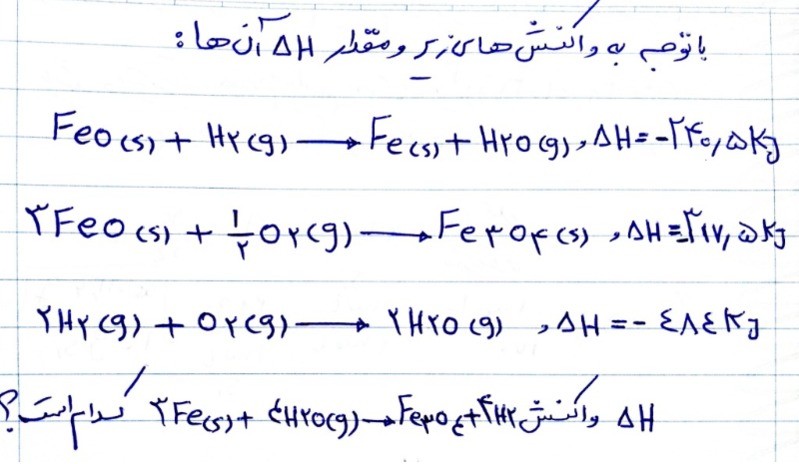 با توجه به واکنش های زیر و مقدار ΔH آن ها:
FeO(s) + H۲(g) → Fe(s) + H۲O(g) , ΔH = -۲۴۰,۵ KJ
۳FeO(s) + ۱/۲ O۲(g) → Fe۳O۴(s) , ΔH = -۳۱۷,۵ KJ
۲H۲(g) + O۲(g) → ۲H۲O(g) , ΔH = - ٤٨٤ KJ
ΔH واکنش ۳Fe(s) + ٤H۲O(g) → Fe۳O٤ + ۴H۲ کدام است؟